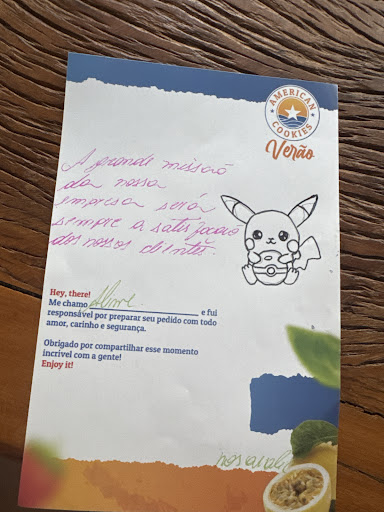 AMERICAN
COOKIES
Verão
A grande missão
da nossa
empresa será
sempre a satisfação
dos nossos clientes.
Hey, there!
Me chamo Aline e fui
responsável por preparar seu pedido com todo
amor, carinho e segurança.
Obrigado por compartilhar esse momento
incrível com a gente!
Enjoy it!